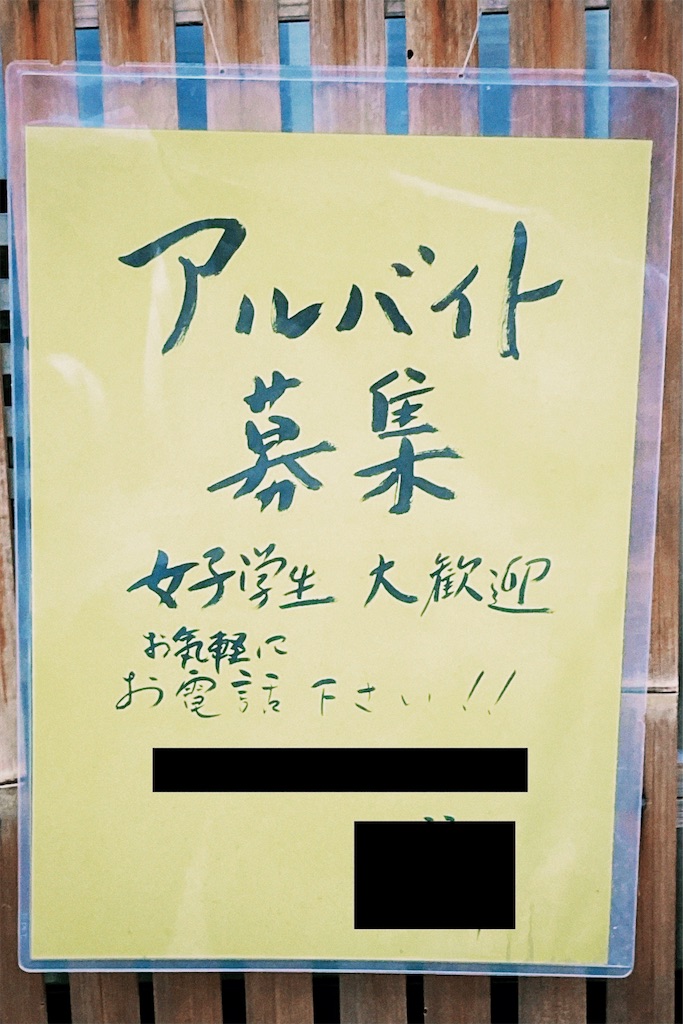 アルバイト
募集
女子学生 大歓迎
お気軽に
お電話下さい!!